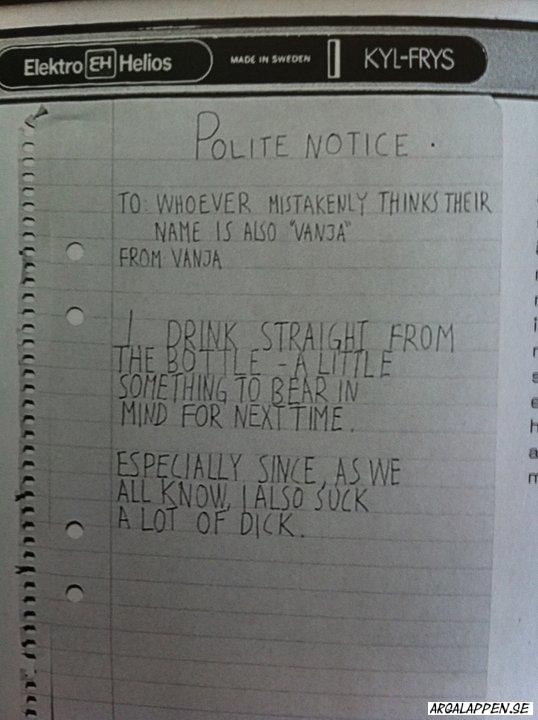 Elektro EH Helios MADE IN SWEDEN KYL-FRYS
POLITE NOTICE.
TO: WHOEVER MISTAKENLY THINKS THEIR
NAME IS ALSO "VANJA"
FROM VANJA
I DRINK STRAIGHT FROM
THE BOTTLE - A LITTLE
SOMETHING TO BEAR IN
MIND FOR NEXT TIME.
ESPECIALLY SINCE, AS WE
ALL KNOW, I ALSO SUCK
A LOT OF DICK.
ARGALAPPEN.SE